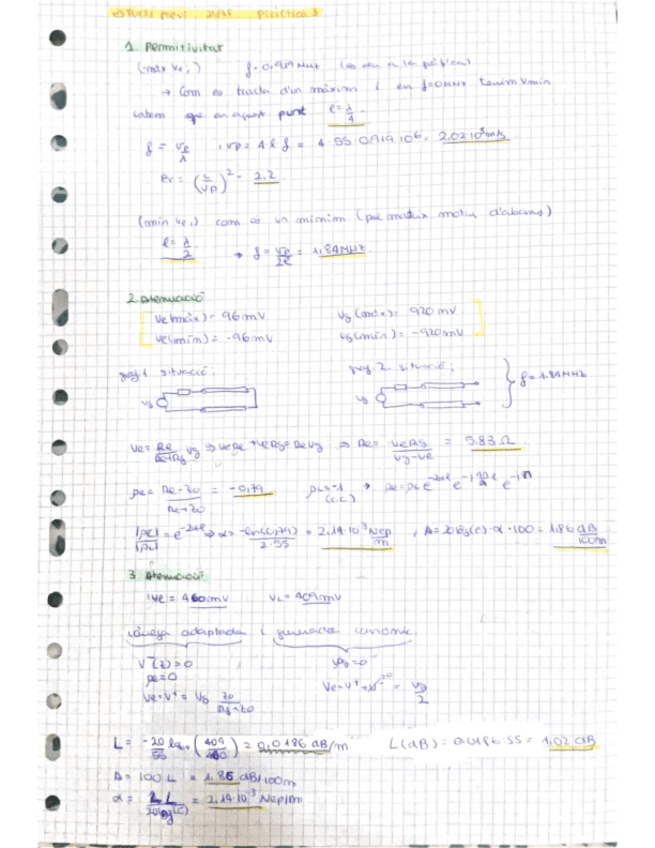 1. Permitivitat
(màx Ve;) f = 0,919 MHz (es veu a la gràfica)
→ Com es tracta d'un màxim i en f=0MHz tenim Vmin
sabem que en aquest punt l = λ/4.
f = vp/λ , vp = 4·l·f = 4·55·0,919·10^6 = 2,02·10^8 m/s
εr = (c/vp)^2 = 2,2
(min Ve,) com es un mínim (pel mateix motiu d'abans)
l = λ/2 → f = vp/2l = 1,84MHz
2. Atenuació
Ve(màx) = 96 mV Vg(màx) = 920 mV
Ve(mín) = -96 mV Vg(mín) = -920mV
1 situació: 2. situació:
Vg Vg f = 1.84MHz
Ve = Re/(Re+Rg) Vg ⇒ VeRe + VeRg = ReVg ⇒ Re = VeRg/(Vg-Ve) = 5.83 Ω
ρe = (Re-Z0)/(Re+Z0) = -0,79 ρL = -1 (c.c)
|ρe|/|ρL| = e^-2αl ⇒ α = -ln(0,79)/(2·55) = 2.14·10^-3 Nep/m , A = 20log(e)·α·100 = 1.86 dB
3. Atenuació:
Ve = 460mV VL = 409mV
càrrega adaptada i generador canonic
V-(z) = 0 ρg = 0
ρe = 0
Ve = V+ = Vg Z0/(Rg+Z0) = Vg/2
L = -20/55 log (409/460) = 0,0186 dB/m L(dB) = 0,0186·55 = 1,02 dB
A = 100 L = 1,86 dB/100m
α = = 2,14·10^-3 Nep/m